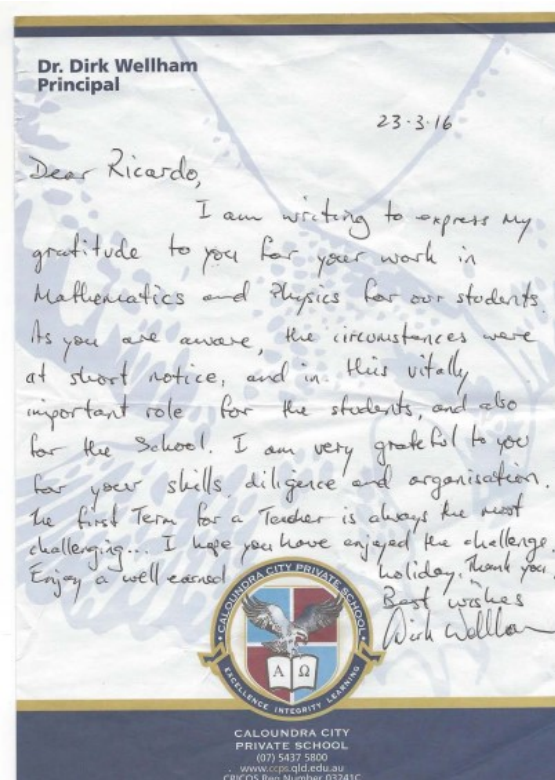 Dr. Dirk Wellham
Principal
23.3.16
Dear Ricardo,
I am writing to express my
gratitude to you for your work in
Mathematics and Physics for our students.
As you are aware, the circumstances were
at short notice, and in this vitally
important role for the students, and also
for the School. I am very grateful to you
for your skills, diligence and organisation.
The first Term for a Teacher is always the most
challenging... I hope you have enjoyed the challenge.
Enjoy a well earned holiday. Thank you.
Best wishes
Dirk Wellham
CALOUNDRA CITY PRIVATE SCHOOL
Α Ω
EXCELLENCE INTEGRITY LEARNING
CALOUNDRA CITY
PRIVATE SCHOOL
(07) 5437 5800
www.ccps.qld.edu.au
CRICOS Reg Number 03241C